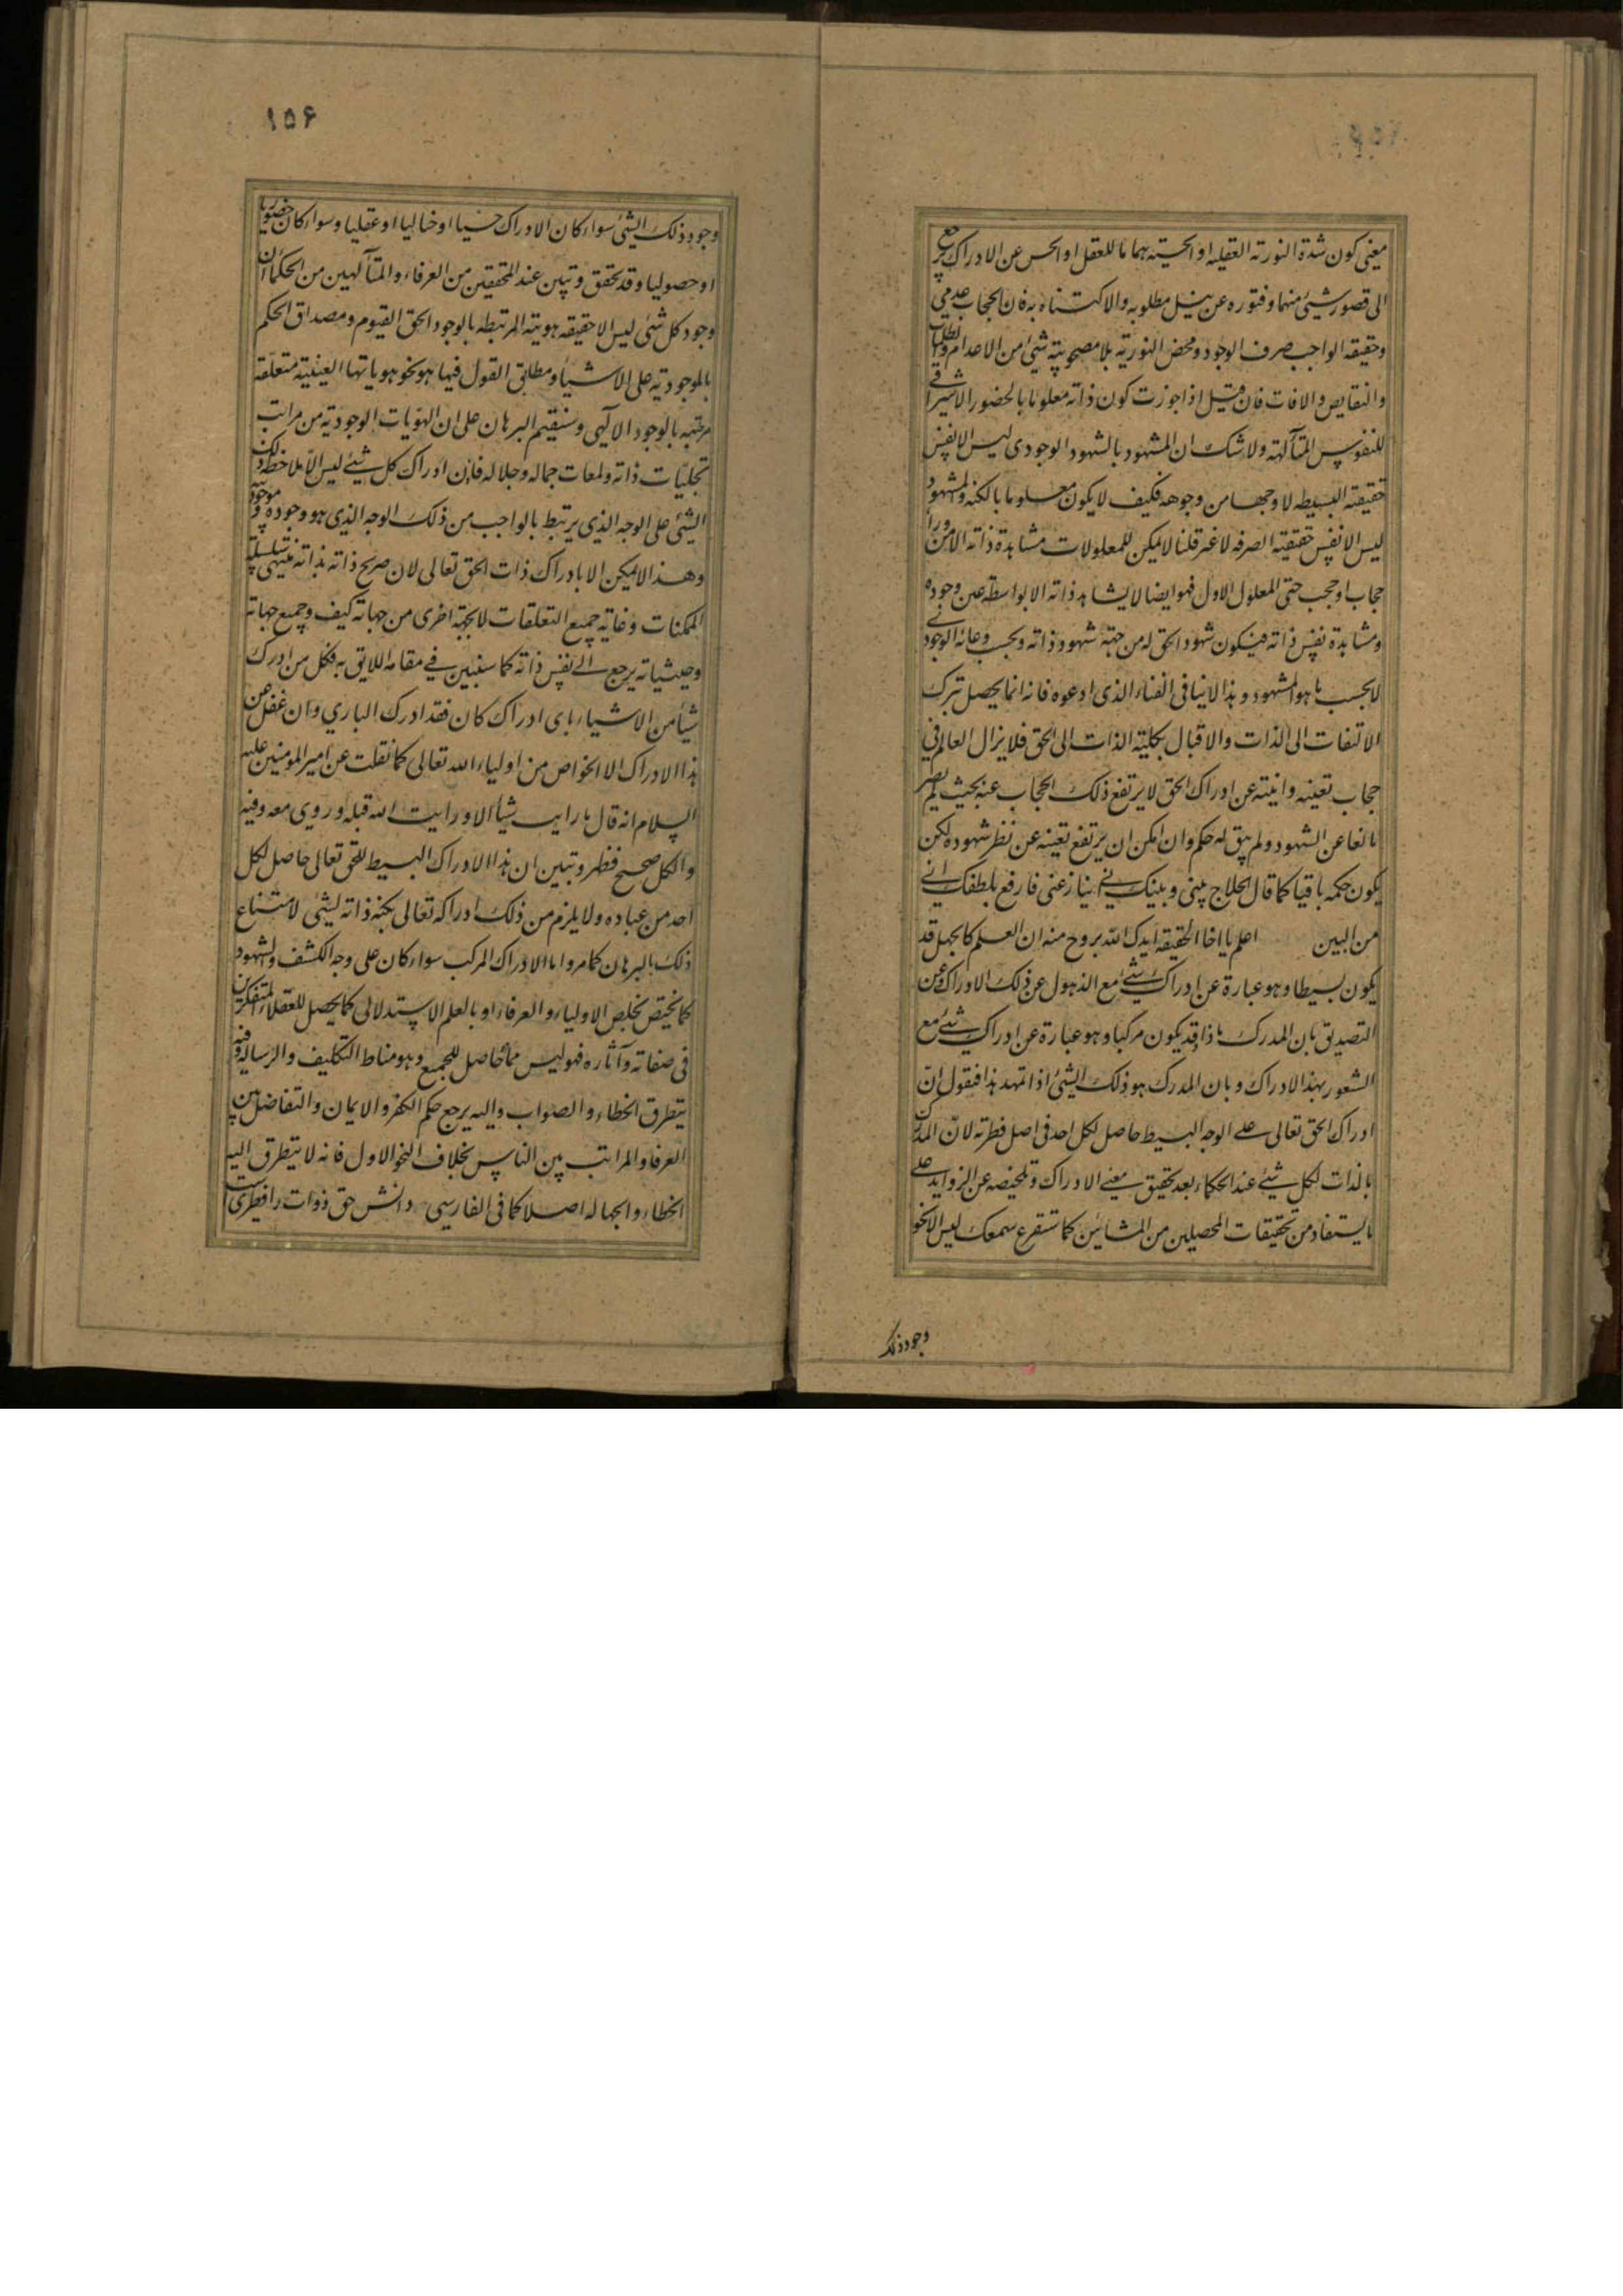 معنى كون شدة النورية العقلية او الحسية بهما للعقل او الحس عن الادراك يرجع
الى قصور شيئ منهما وفتوره عن نيل مطلوبه والاكتناه به فان الحجاب عدمى
وحقيقة الواجب صرف الوجود ومحض النورية بلا مصحوبية شيئ من الاعدام والظلمات
والنقايص والافات فان قيل اذا جوزت كون ذاته معلوما بالحضور الاشراقى
للنفوس المتألهة ولا شك ان المشهود بالشهود الوجودى ليس الا نفس
حقيقته البسيطه لا وجها من وجوهه فكيف لا يكون معلوما بالكنه والمشهود
ليس الا نفس حقيقته الصرفه لا غير قلنا لا يمكن للمعلولات مشاهدة ذاته الا من وراء
حجاب او حجب حتى المعلول الاول فهو ايضا لا يشاهد ذاته الا بواسطة عين وجوده
ومشاهدة نفس ذاته فيكون شهود الحق له من جهة شهود ذاته وبحسب وعائه الوجودى
لا بحسب ما هو المشهود وهذا لا ينافى الفناء الذى ادعوه فانه انما يحصل بترك
الالتفات الى الذات والاقبال بكلية الذات الى الحق فلا يزال العالم فى
حجاب تعينه وانيته عن ادراك الحق لا يرتفع ذلك الحجاب عنه بحيث لم يصر
مانعا عن الشهود ولم يبق له حكم وان امكن ان يرتفع تعينه عن نظر شهوده لكن
يكون حكمه باقيا كما قال الحلاج بينى وبينك انى ينازعنى فارفع بلطفك انى
من البين اعلم يا اخا الحقيقه ايدك الله بروح منه ان العلم كالجهل قد
يكون بسيطا وهو عبارة عن ادراك شيئ مع الذهول عن ذلك الادراك وعن
التصديق بان المدرك ماذا وقد يكون مركبا وهو عبارة عن ادراك شيئ مع
الشعور بهذا الادراك وبان المدرك هو ذلك الشيئ اذا تمهد هذا فنقول ان
ادراك الحق تعالى على الوجه البسيط حاصل لكل احد فى اصل فطرته لان المدرك
بالذات لكل شيئ عند الحكماء بعد تحقيق معنى الادراك وتلخيصه عن الزوايد على
ما يستفاد من تحقيقات المحصلين من المشائين كما ستقرع سمعك ليس الا نحو
وجود ذلك
١٥۶
وجود ذلك الشيئ سواء كان الادراك حسيا او خياليا او عقليا وسواء كان حضوريا
او حصوليا وقد تحقق وتبين عند المحققين من العرفاء والمتألهين من الحكماء ان
وجود كل شئى ليس الا حقيقه هويته المرتبطه بالوجود الحق القيوم ومصداق الحكم
بالموجودية على الاشياء ومطابق القول فيها هو نحو هوياتها العينية متعلقة
مرتبة بالوجود الآلهى وسنقيم البرهان على ان الهويات الوجودية من مراتب
تجليات ذاته ولمعات جماله وجلاله فاذن ادراك كل شيئ ليس الا ملاحظة ذلك
الشيئ على الوجه الذى يرتبط بالواجب من ذلك الوجه الذى هو وجوده وموجوديته
وهذا لا يمكن الا بادراك ذات الحق تعالى لان صريح ذاته بذاته منتهى سلسلة
الممكنات وغاية جميع التعلقات لا بجهة اخرى من جهاته كيف وجميع جهاته
وحيثياته يرجع الى نفس ذاته كما سنبين فى مقامه اللايق به فكل من ادرك
شيأ من الاشياء باى ادراك كان فقد ادرك البارى وان غفل عن
هذا الادراك الا الخواص من اولياء الله تعالى كما نقلت عن امير المومنين عليه
السلام انه قال ما رايت شيأ الا ورايت الله قبله وروى معه وفيه
والكل صحيح فظهر وتبين ان هذا الادراك البسيط للحق تعالى حاصل لكل
احد من عباده ولا يلزم من ذلك ادراكه تعالى بكنه ذاته لشيى لامتناع
ذلك بالبرهان كما مر واما الادراك المركب سواء كان على وجه الكشف والشهود
كما يختص بخلص الاولياء والعرفاء او بالعلم الاستدلالى كما يحصل للعقلاء المتفكرين
فى صفاته وآثاره فهو ليس مما حاصل للجميع وهو مناط التكليف والرسالة وفيه
يتطرق الخطاء والصواب واليه يرجع حكم الكفر والايمان والتفاضل بين
العرفا والمراتب بين الناس بخلاف النحو الاول فانه لا يتطرق اليه
الخطاء والجهاله اصلا كما فى الفارسى دانش حق ذوات را فطريست